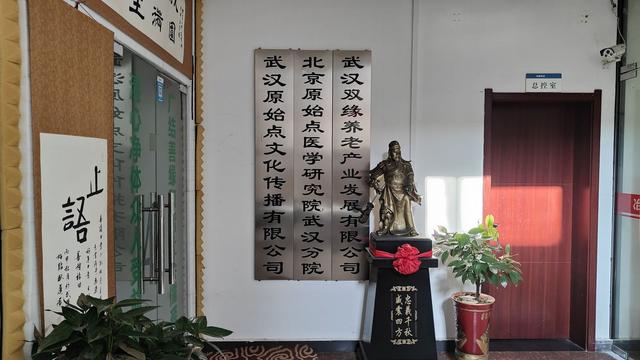 止語
广结善缘
武汉原始点文化传播有限公司
北京原始点医学研究院武汉分院
武汉双缘养老产业发展有限公司
总控室
忠義千秋
威震四方